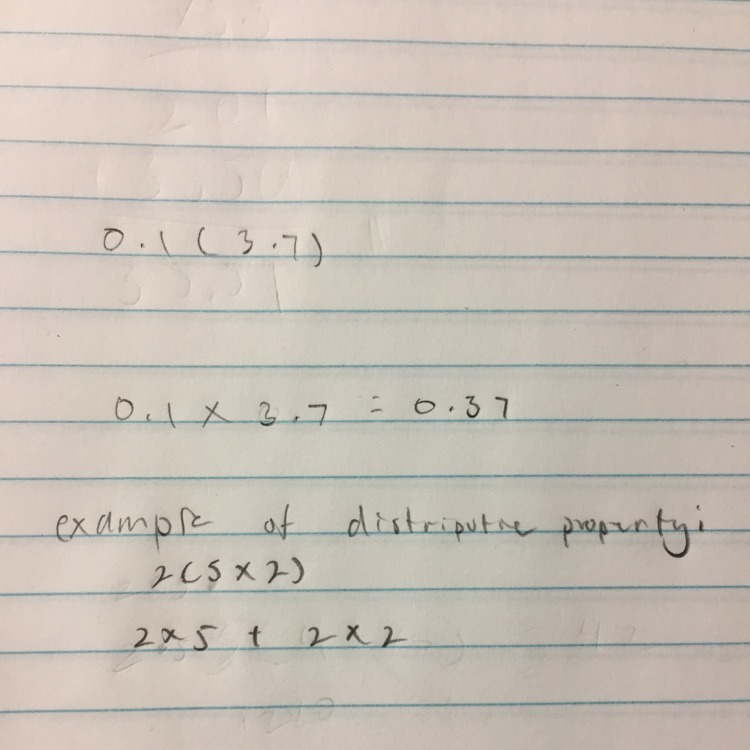 0.1(3.7)
0.1 × 3.7 = 0.37
example of distriputne property:
2(5×2)
2×5 + 2×2